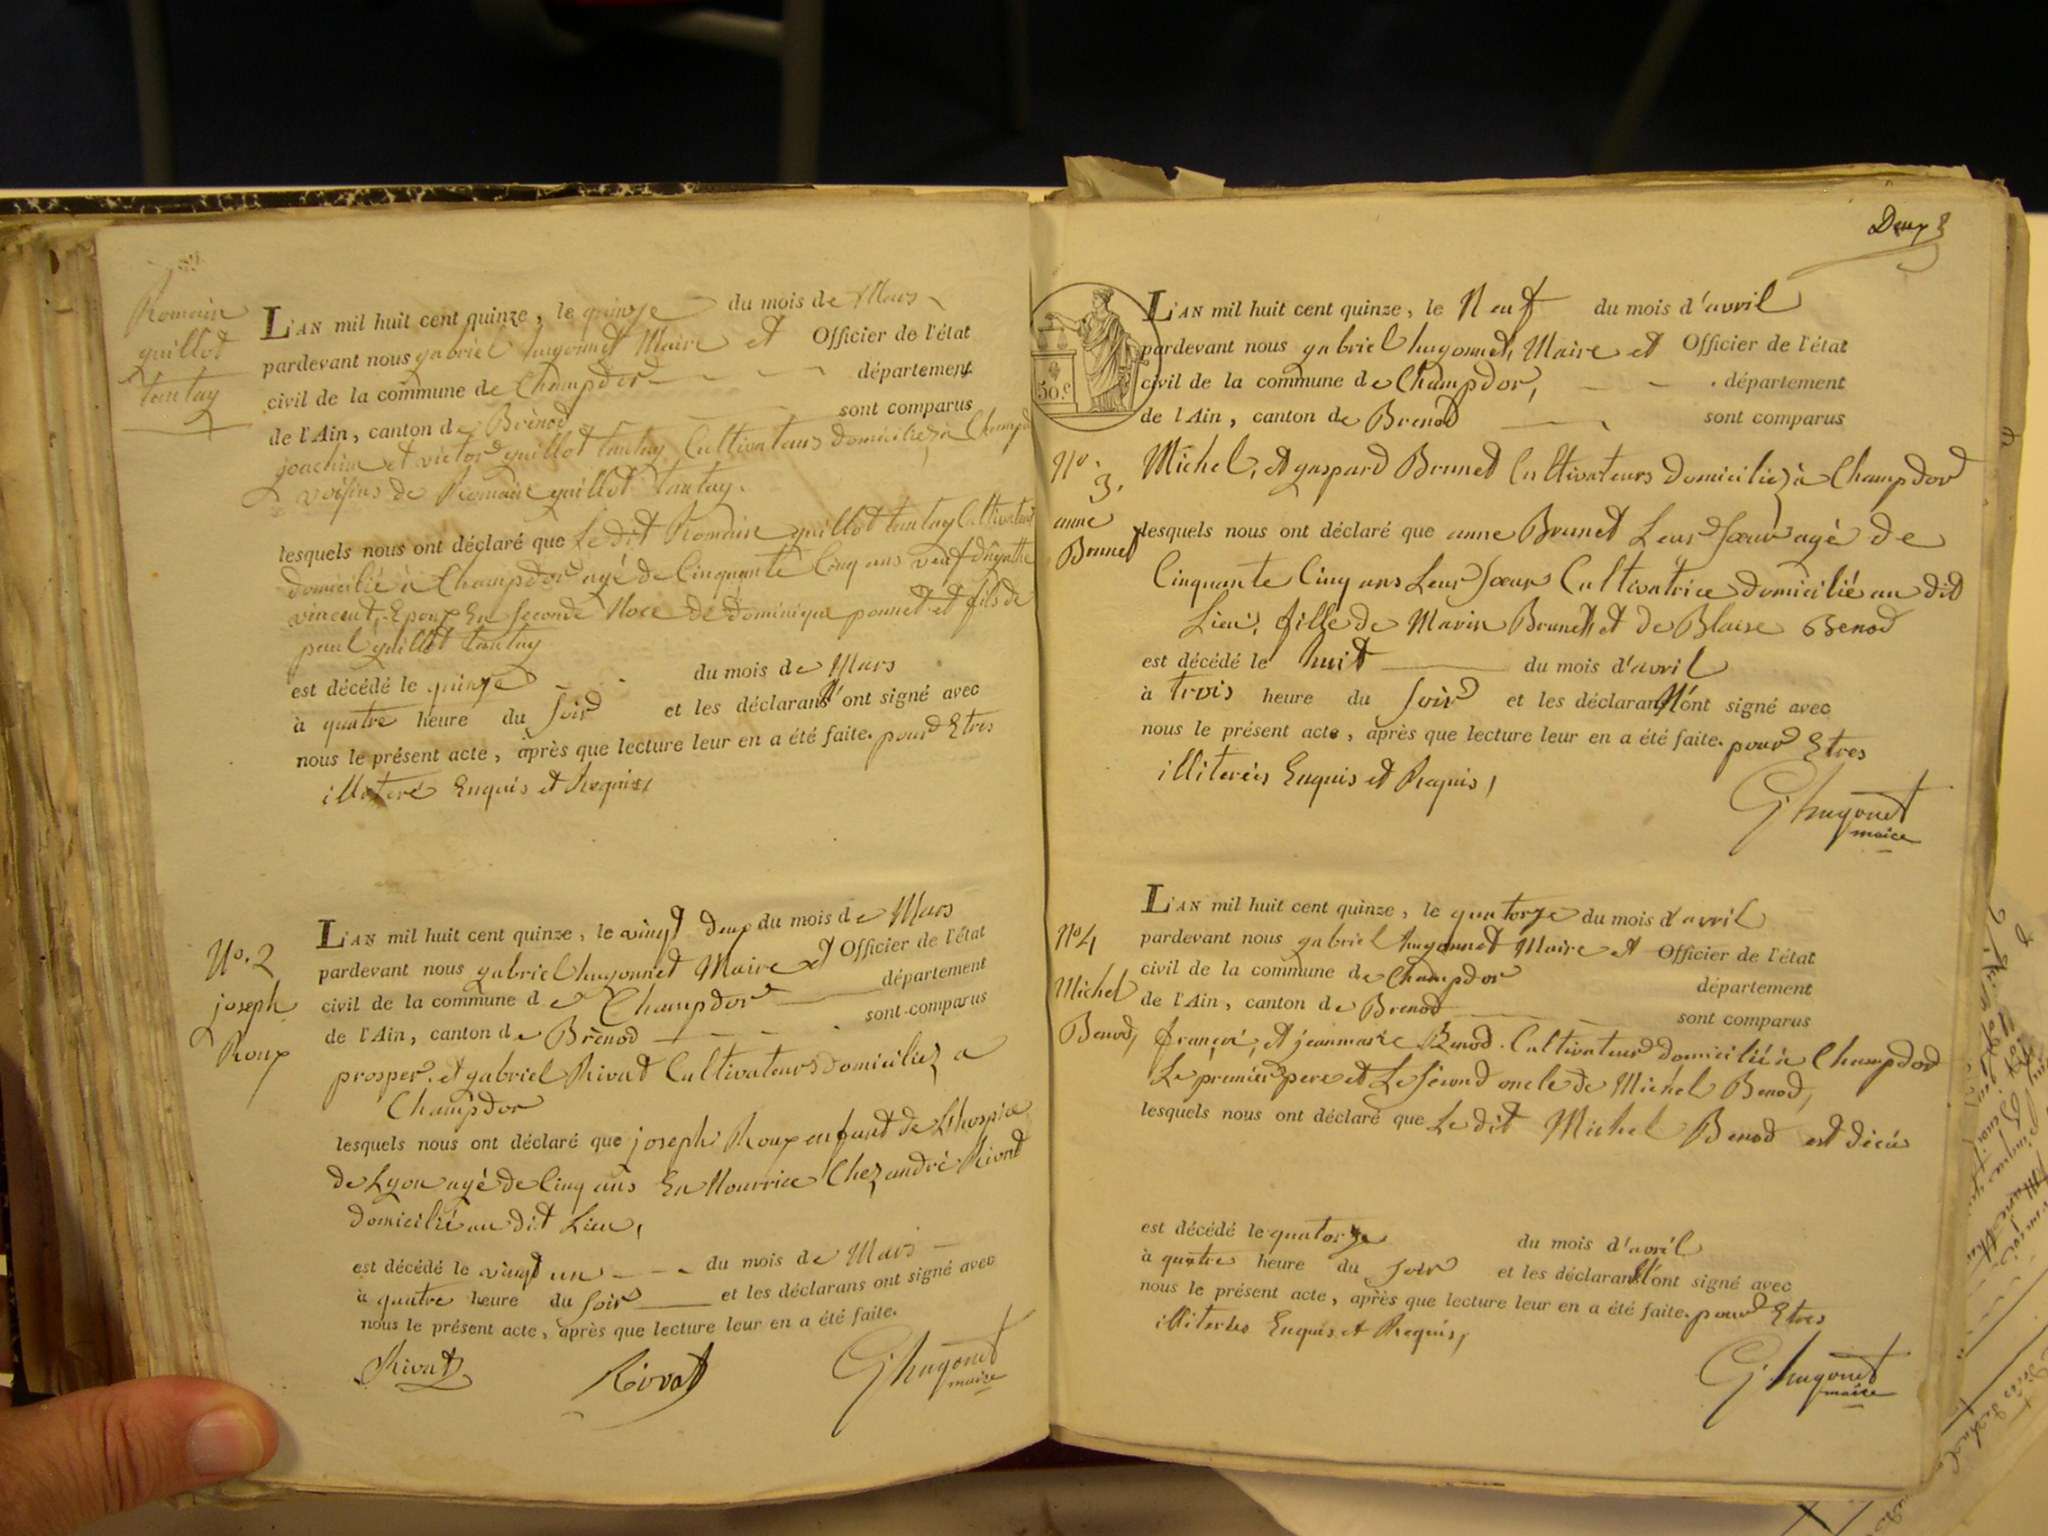 Romain
guillot
tantay
L'AN mil huit cent quinze, le quinze du mois de Mars
pardevant nous gabriel hugonnet Maire et Officier de l'état
civil de la commune de Champdor département
de l'Ain, canton de Brénod sont comparus
joachim et victor guillot tantay Cultivateurs domiciliez à Champd
voisins de Romain guillot tantay.
lesquels nous ont déclaré que Le dit Romain guillot tantay Cultivateur
domicilié à Champdor agé de Cinquante Cinq ans veuf
vincent, Epoux En Seconde Noce de dominique ponnet et fils de
paul guillot tantay
est décédé le quinze du mois de Mars
à quatre heure du soir et les déclarans n'ont signé avec
nous le présent acte, après que lecture leur en a été faite. pour Etres
illiteré Enquis et Requis,
No. 2
joseph
Roux
L'AN mil huit cent quinze, le vingt deux du mois de Mars
pardevant nous gabriel hugonnet Maire et Officier de l'état
civil de la commune de Champdor département
de l'Ain, canton de Brénod sont comparus
prosper, et gabriel Rivat Cultivateurs domiciliez a
Champdor
lesquels nous ont déclaré que joseph Roux enfant de L'hospice
de Lyon agé de Cinq ans En Nourrice Chez andré Rivat
domicilié au dit Lieu,
est décédé le vingt un du mois de Mars
à quatre heure du soir et les déclarans ont signé avec
nous le présent acte, après que lecture leur en a été faite.
Rivat Rivat G. hugonet
maire
Deux
50 c.
L'AN mil huit cent quinze, le Neuf du mois d'avril
pardevant nous gabriel hugonnet, Maire et Officier de l'état
civil de la commune de Champdor, département
de l'Ain, canton de Brenod sont comparus
No. 3.
anne
Brunet
Michel, et gaspard Brunet Cultivateurs domiciliez à Champdor
lesquels nous ont déclaré que anne Brunet Leur sœur agé de
Cinquante Cinq ans Leur sœur Cultivatrice domicilié au dit
Lieu, fille de Marin Brunet, et de Blaise Benod
est décédé le huit du mois d'avril
à trois heure du soir et les déclarans N'ont signé avec
nous le présent acte, après que lecture leur en a été faite. pour Etres
illiterées Enquis et Requis,
G. hugonet
maire
No 4
Michel
Benod,
L'AN mil huit cent quinze, le quatorze du mois d'avril
pardevant nous gabriel hugonnet Maire et Officier de l'état
civil de la commune de Champdor département
de l'Ain, canton de Brenod sont comparus
françoi, et jeanmarie Benod. Cultivateur domicilié à Champdor
Le premier pere et Le Second oncle de Michel Benod,
lesquels nous ont déclaré que Le dit Michel Benod est décé
est décédé le quatorze du mois d'avril
à quatre heure du soir et les déclarans N'ont signé avec
nous le présent acte, après que lecture leur en a été faite. pour Etres
illiterées Enquis et Requis,
G. hugonet
maire